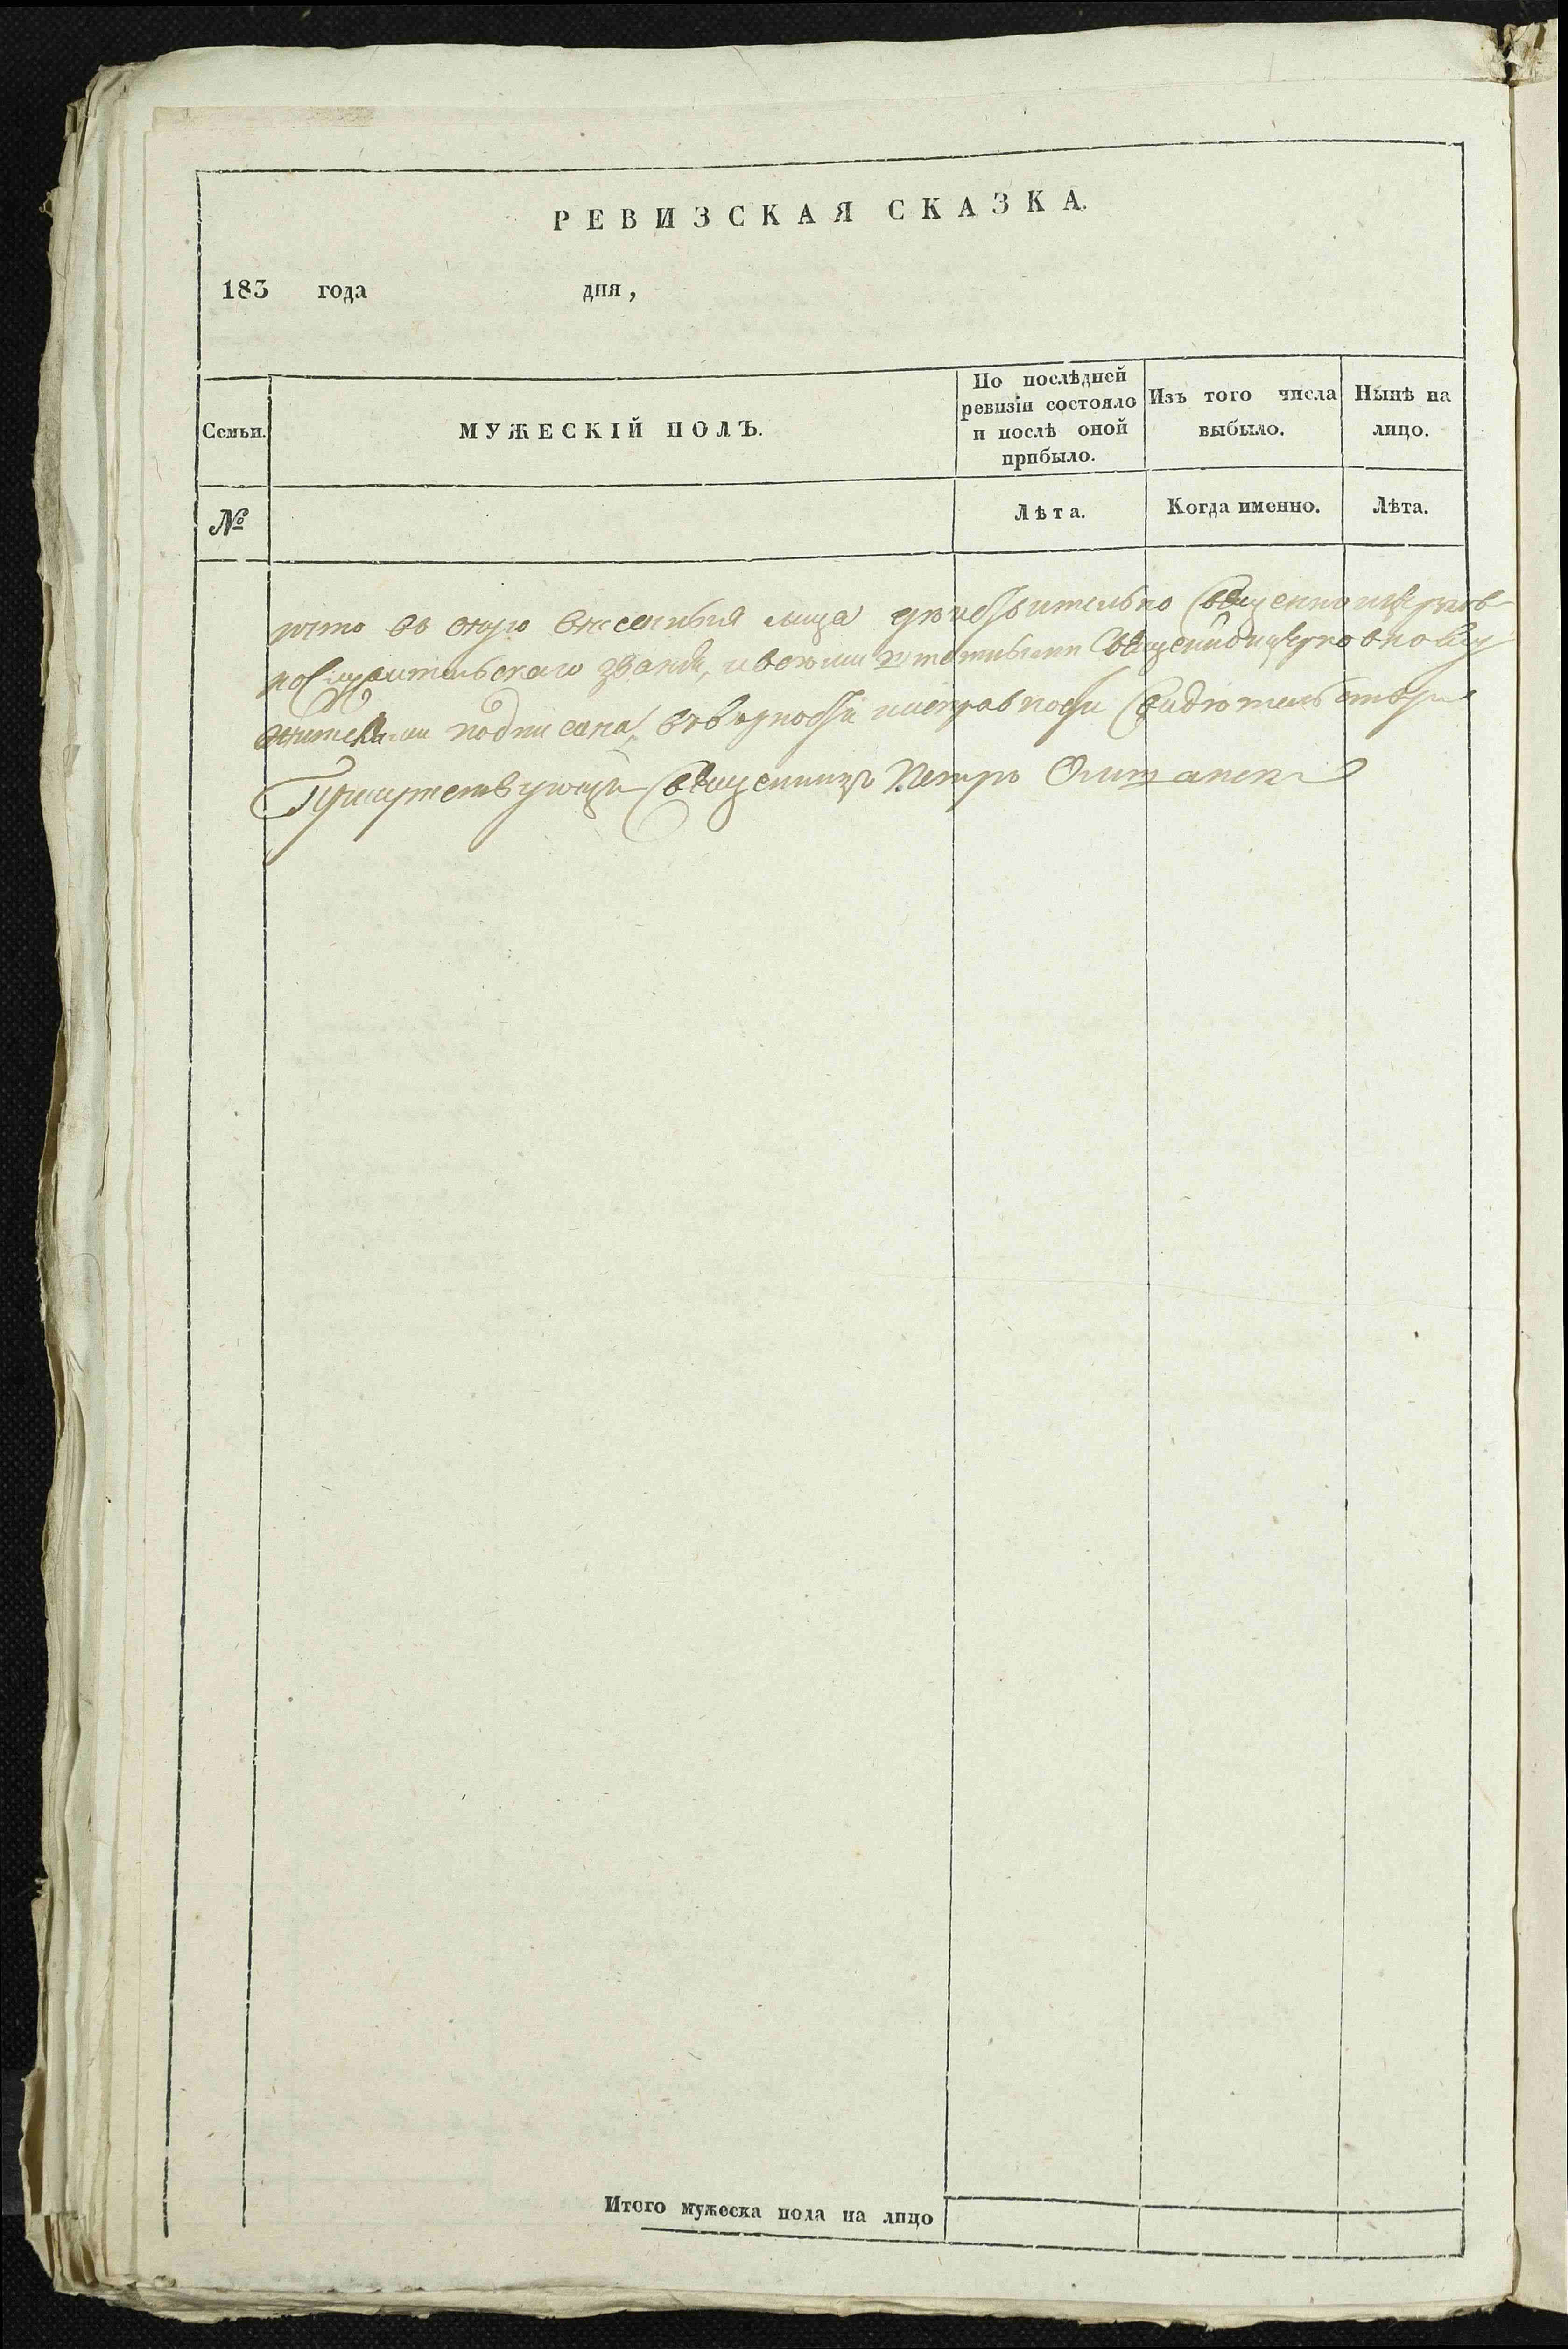 РЕВИЗСКАЯ СКАЗКА.
183 года дня,
Семьи.
МУЖЕСКІЙ ПОЛЪ.
По послѣдней ревизіи состояло и послѣ оной прибыло.
Изъ того числа выбыло.
Нынѣ на лицо.
№
Лѣта.
Когда именно.
Лѣта.
что въ оную внесенныя лица священноицерков-
нослужительскаго званія, и всѣми священноицерковнослу
жителями подписана, въ вѣрности и исправности свидѣтельствую
Присутствующій Священникъ Петръ
Итого мужеска пола на лицо